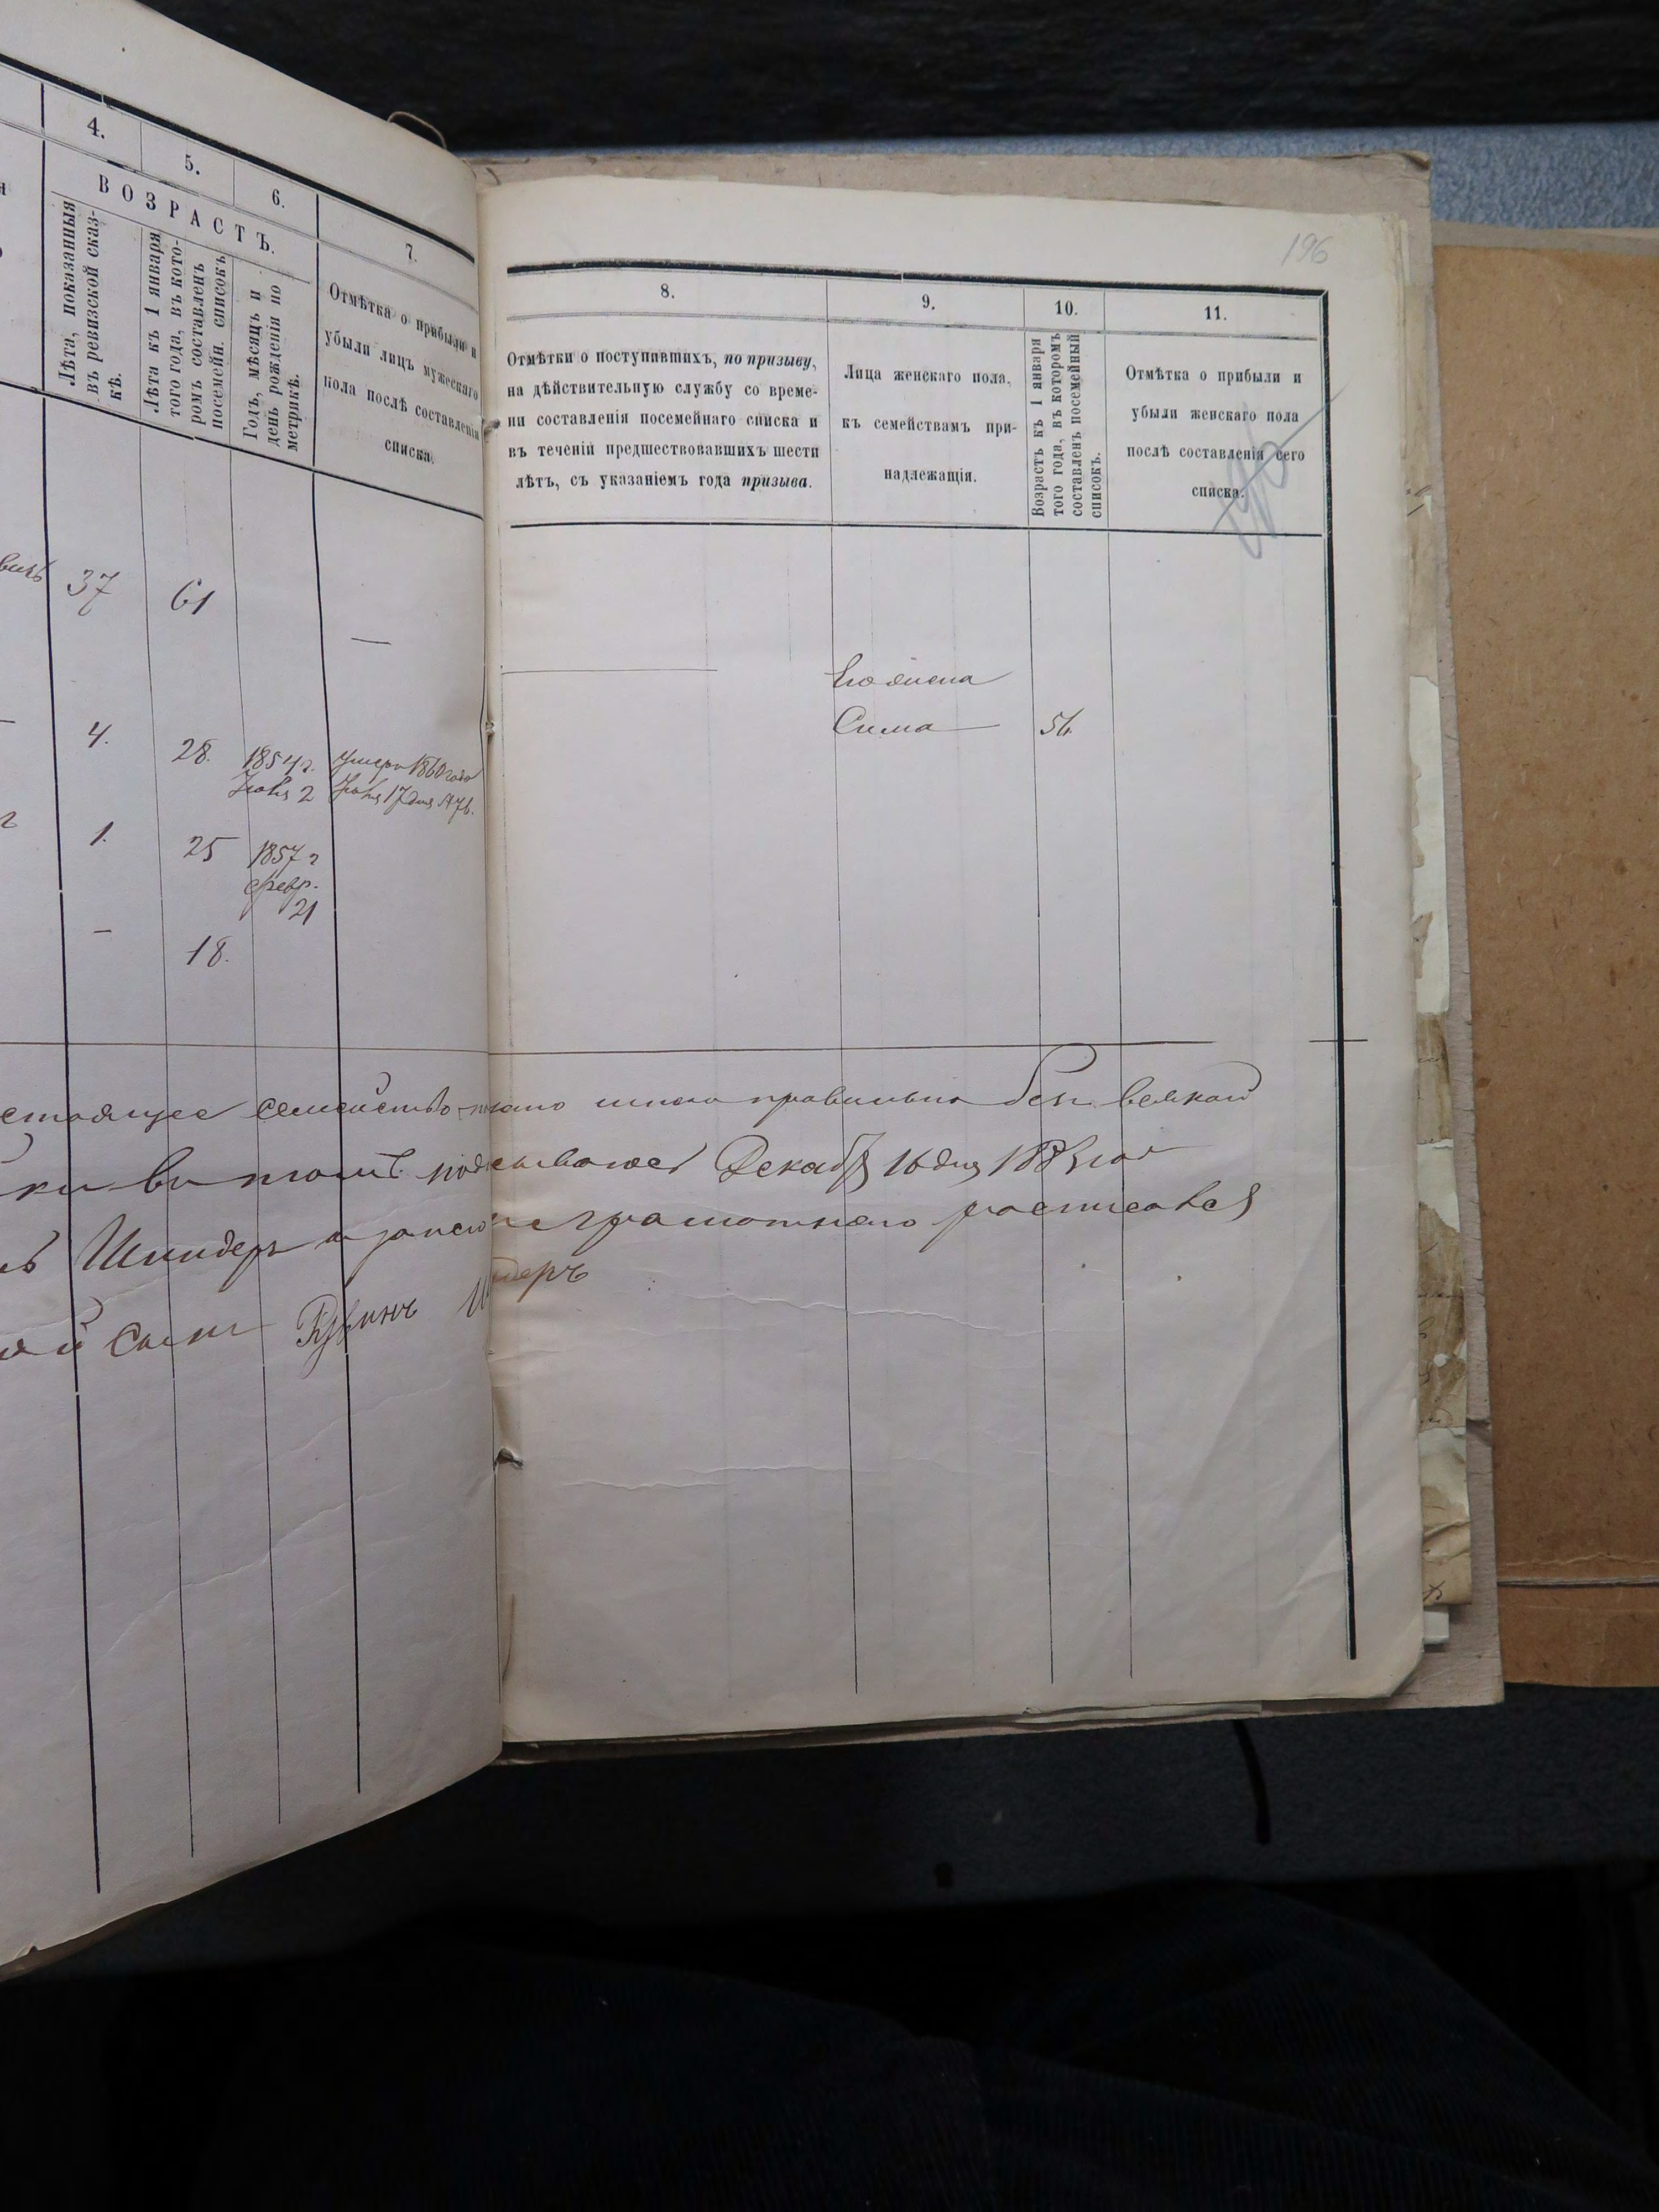 4.
5.
6.
7.
ВОЗРАСТЪ.
Лѣта, показанныя
въ ревизской сказ-
кѣ.
Лѣта къ 1 января
того года, въ кото-
ромъ составленъ
посемейн. списокъ
Годъ, мѣсяцъ и
день рожденія по
метрикѣ.
Отмѣтка о прибыли и
убыли лицъ мужескаго
пола послѣ составленія
списка.
37 61
—
4. 28. 1854 г. умеръ 1860 года
Іюня 2 Іюня 17 дня №76.
1. 25 1857 г
февр.
21
— 18.
196
8.
9.
10.
11.
Отмѣтки о поступившихъ, по призыву,
на дѣйствительную службу со време-
ни составленія посемейнаго списка и
въ теченіи предшествовавшихъ шести
лѣтъ, съ указаніемъ года призыва.
Лица женскаго пола,
къ семействамъ при-
надлежащія.
Возрастъ къ 1 января
того года, въ которомъ
составленъ посемейный
списокъ.
Отмѣтка о прибыли и
убыли женскаго пола
послѣ составленія сего
списка.
Его жена
Сима 56
стоящее семейство правильно безъ всякой
ки въ томъ Декабр 16 дня
Шмидеръ а неграмотнаго росписался
сынъ Рувинъ